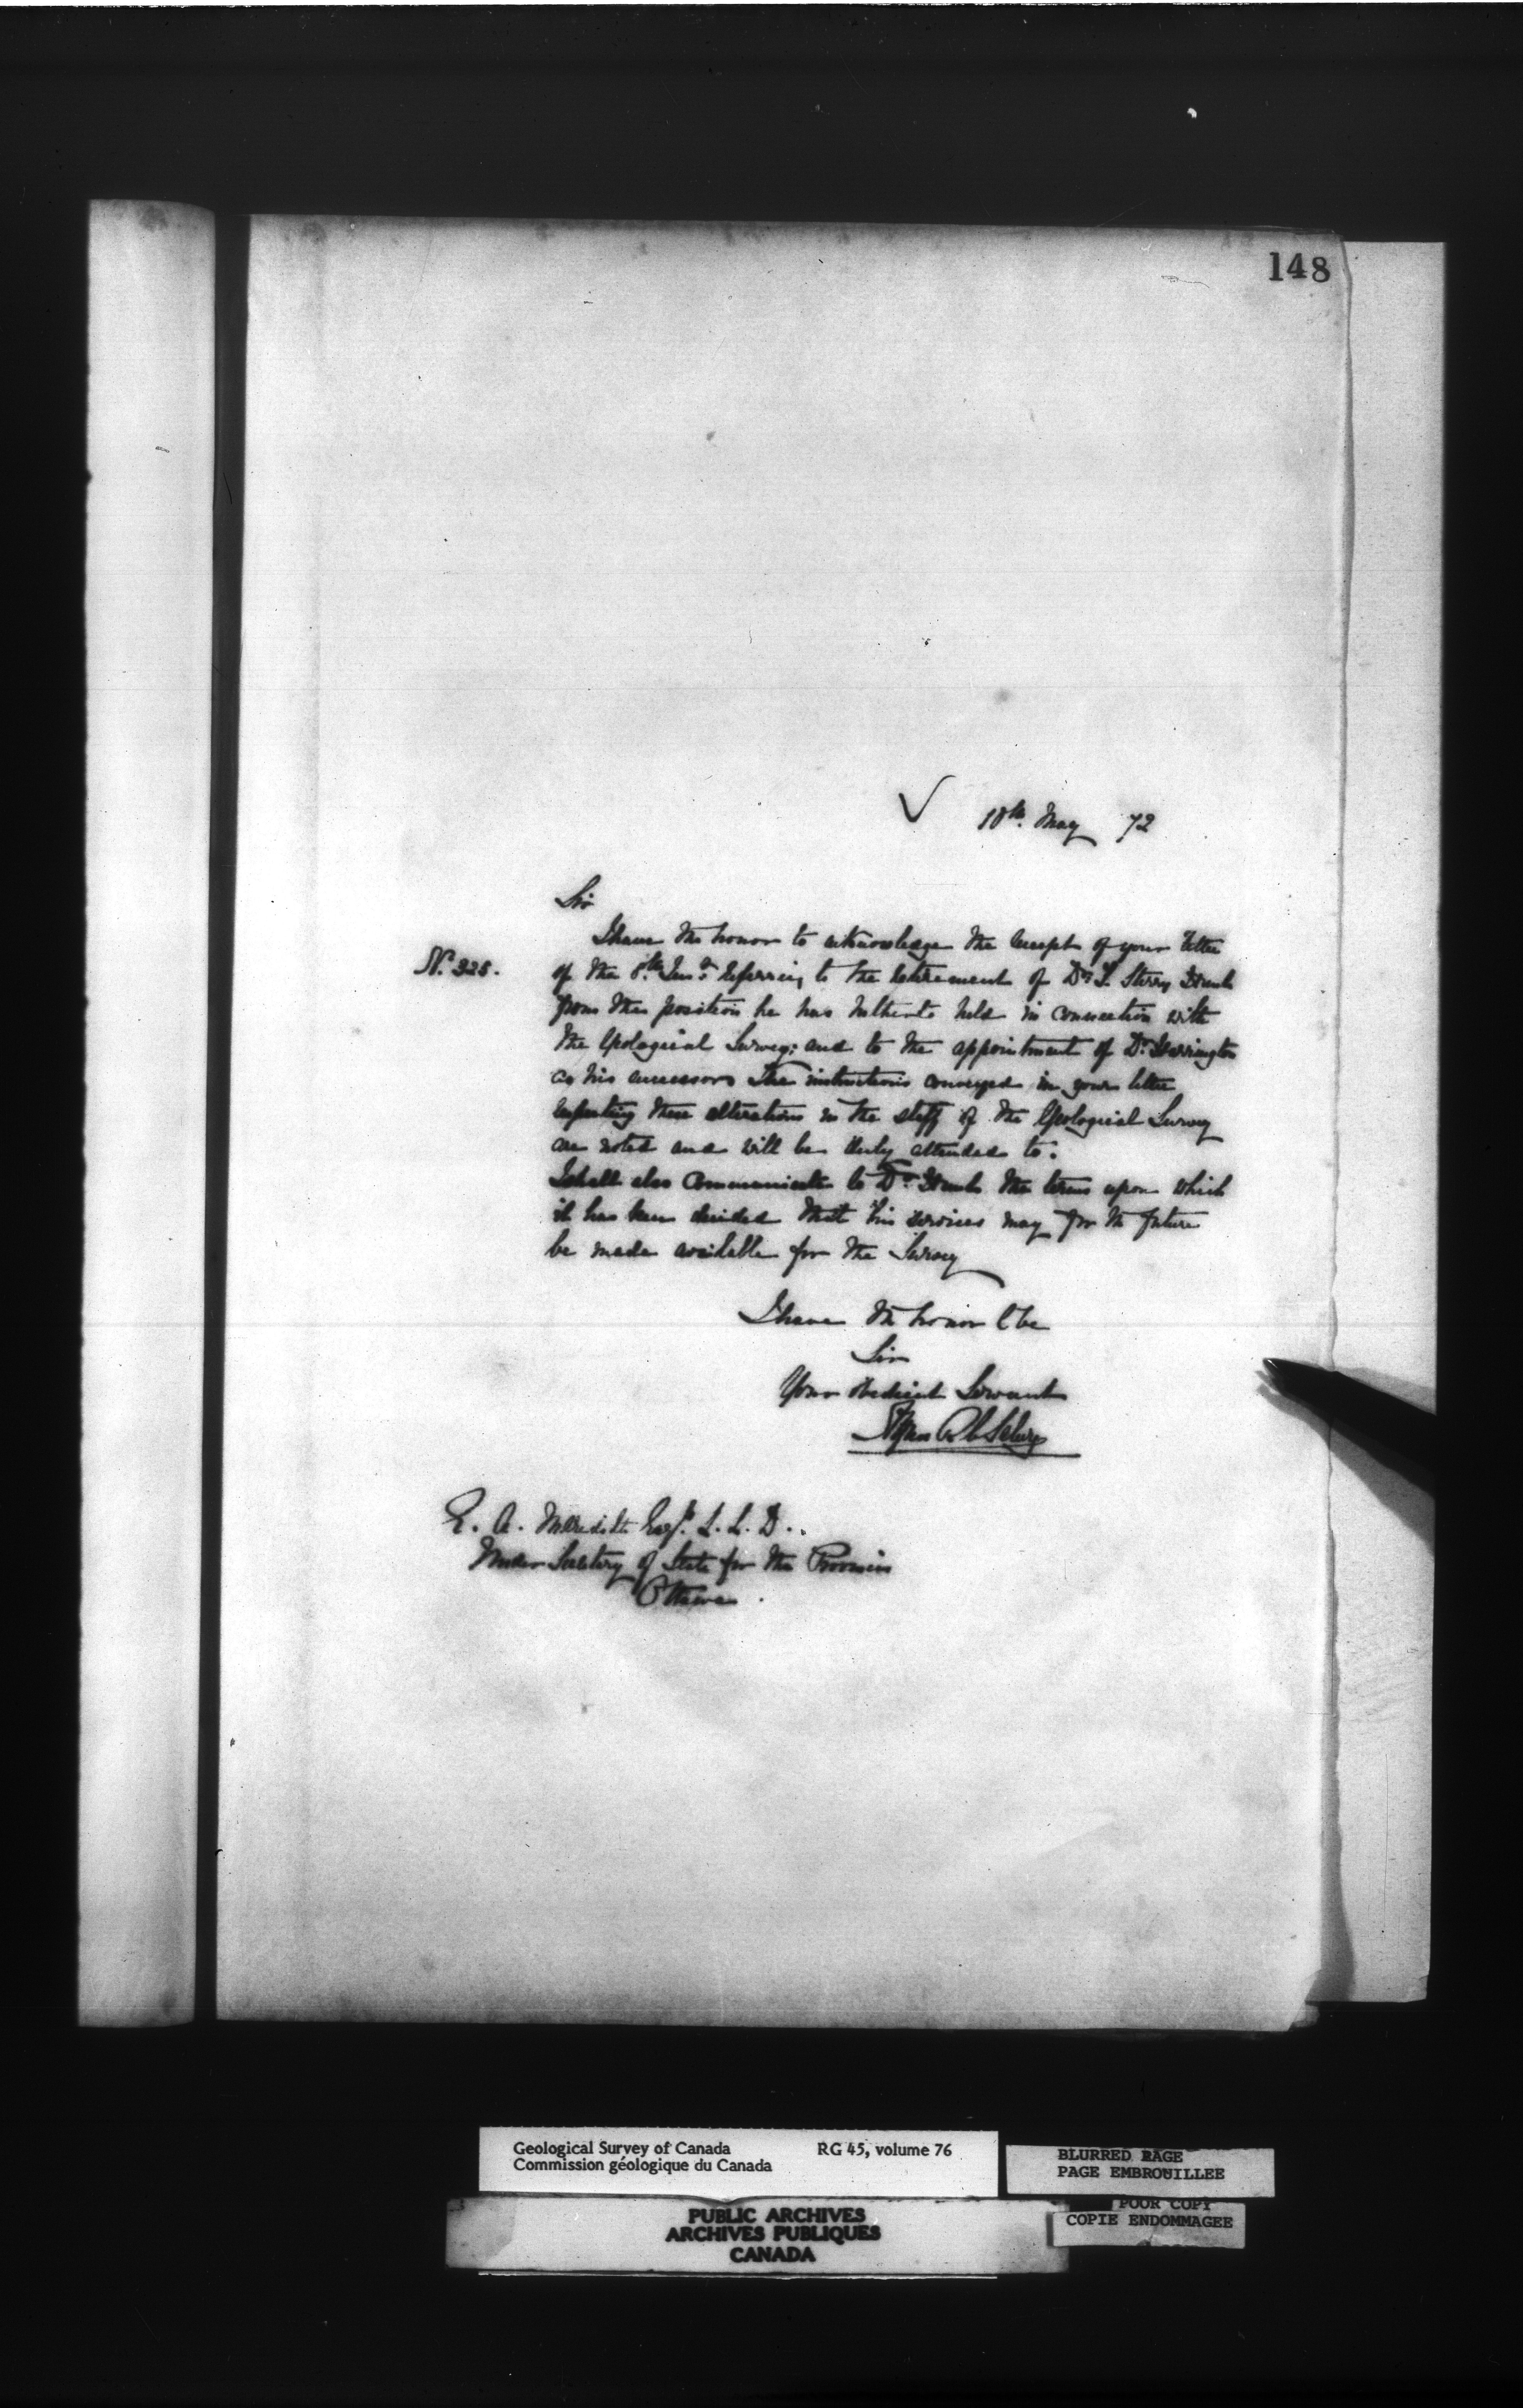 148
18th. May 72
Sir
I have the honor to acknowledge the receipt of your letter
No. 325.
of the 8th. Inst. referring to the retirement of Dr. T. Sterry Hunt
from the position he has hitherto held in connection with
the Geological Survey; and to the appointment of Dr. Harrington
as his successor. The instructions conveyed in your letter
respecting these alterations in the staff of the Geological Survey
are noted and will be duly attended to.
I shall also communicate to Dr. Hunt the terms upon which
it has been decided that his services may for the future
be made available for the Survey
I have the honor to be
Sir
Your obedient Servant
Alfred R C Selwyn
E. A. Meredith Esqr. L. L. D..
Under Secretary of State for the Provinces
Ottawa.
Geological Survey of Canada RG 45, volume 76
Commission géologique du Canada
BLURRED PAGE
PAGE EMBROUILLEE
POOR COPY
COPIE ENDOMMAGEE
PUBLIC ARCHIVES
ARCHIVES PUBLIQUES
CANADA